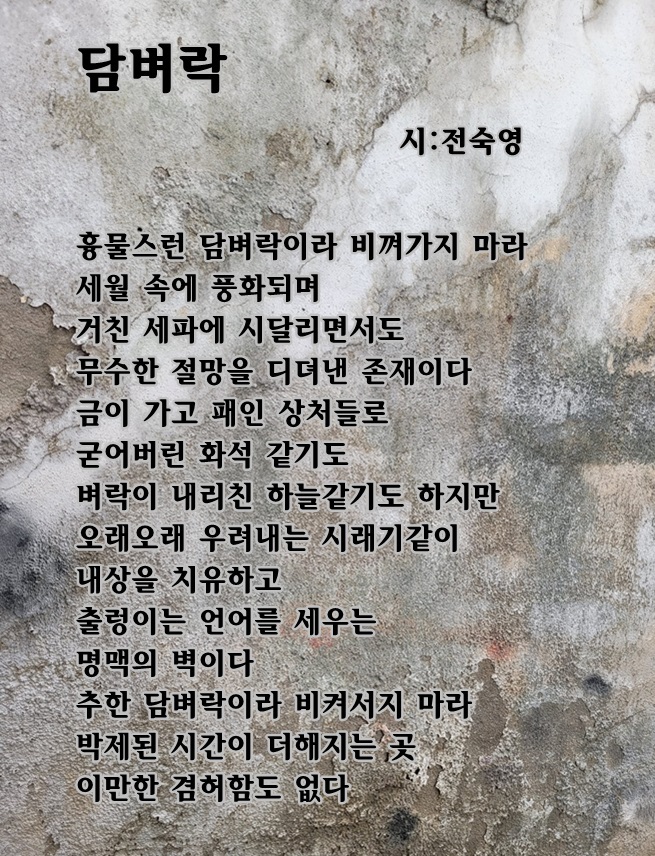 담벼락
시:전숙영
흉물스런 담벼락이라 비껴가지 마라
세월 속에 풍화되며
거친 세파에 시달리면서도
무수한 절망을 디뎌낸 존재이다
금이 가고 패인 상처들로
굳어버린 화석 같기도
벼락이 내리친 하늘같기도 하지만
오래오래 우려내는 시래기같이
내상을 치유하고
출렁이는 언어를 세우는
명맥의 벽이다
추한 담벼락이라 비켜서지 마라
박제된 시간이 더해지는 곳
이만한 겸허함도 없다